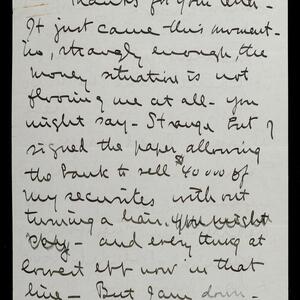 Thanks for your letter -
It just came this moment -
no, strangely enough, the
money situation is not
flooring me at all - you
might say - Strange but I
signed the paper, allowing
the bank to sell $40000 of
my securites without
turning a hair, you might
say - and every thing at
lowest ebb now in that
line - But I am down -